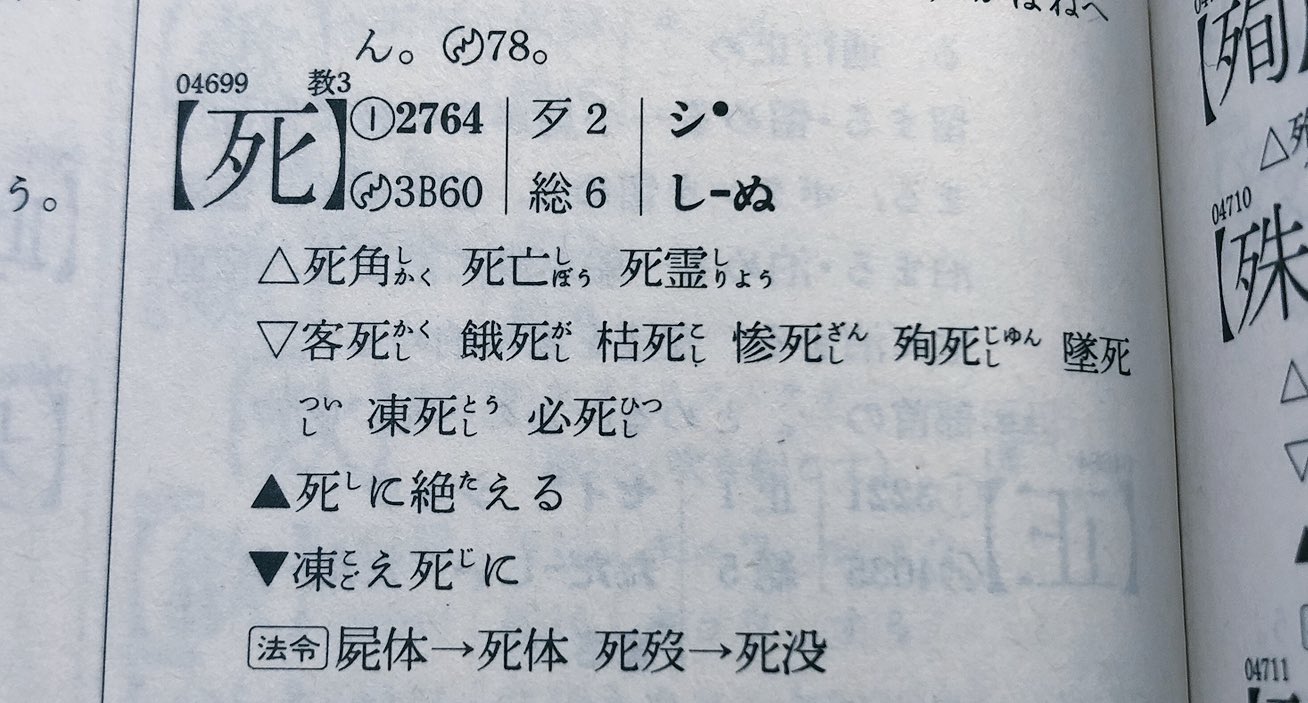 ん。 78。
04699 教3
【死】 ①2764 歹2 シ
3B60 総6 し−ぬ
△死角しかく 死亡しぼう 死霊しりょう
▽客死かくし 餓死がし 枯死こし 惨死ざんし 殉死じゅんし 墜死
ついし 凍死とうし 必死ひつし
▲死しに絶たえる
▼凍こごえ死じに
法令 屍体→死体 死歿→死没
う。
はねへ
【殉
△殉
04710
【殊
△
▽
04711